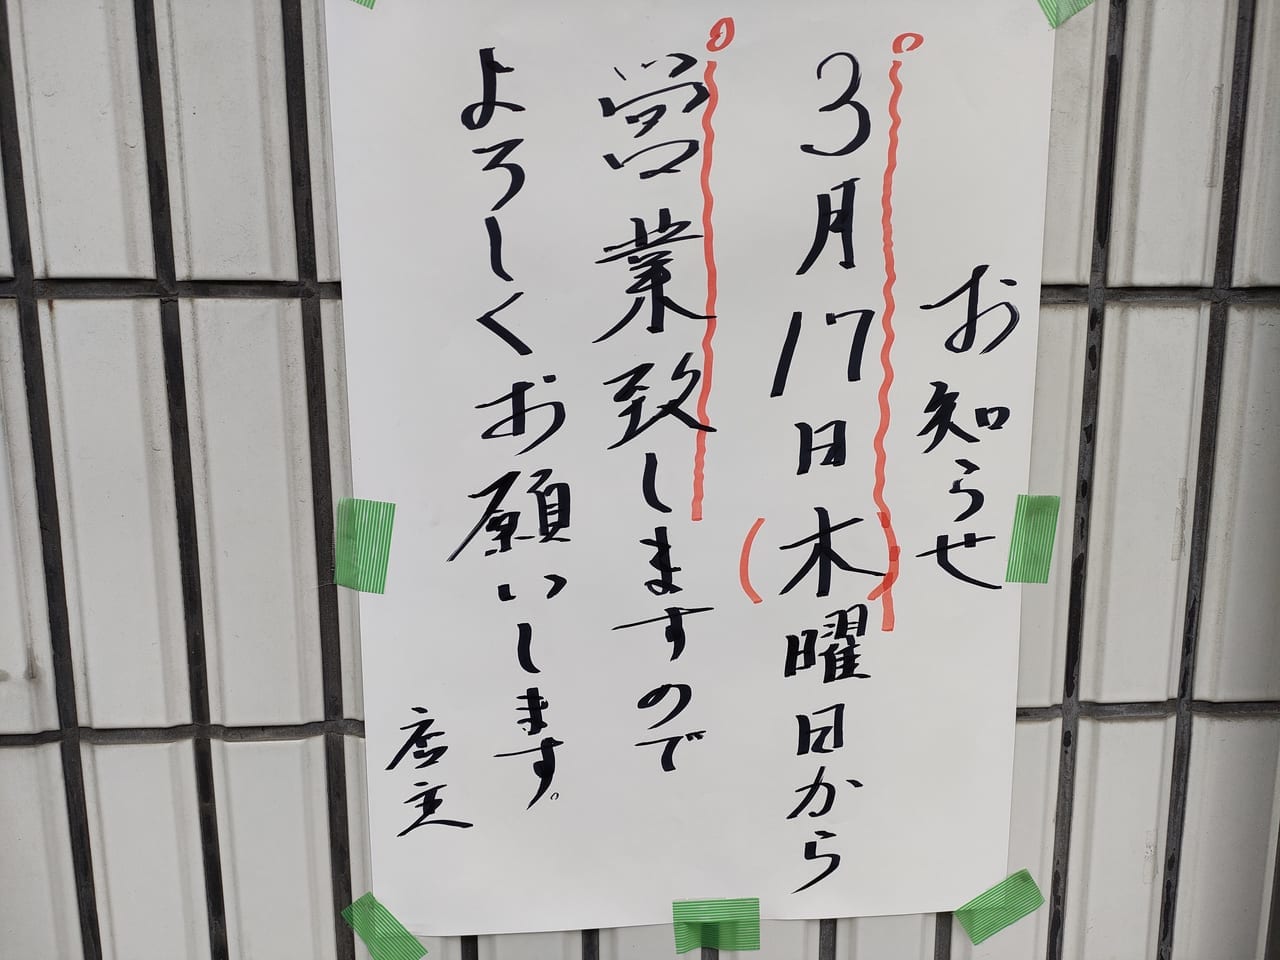 お知らせ
3月17日(木)曜日から
営業致しますので
よろしくお願いします。
店主